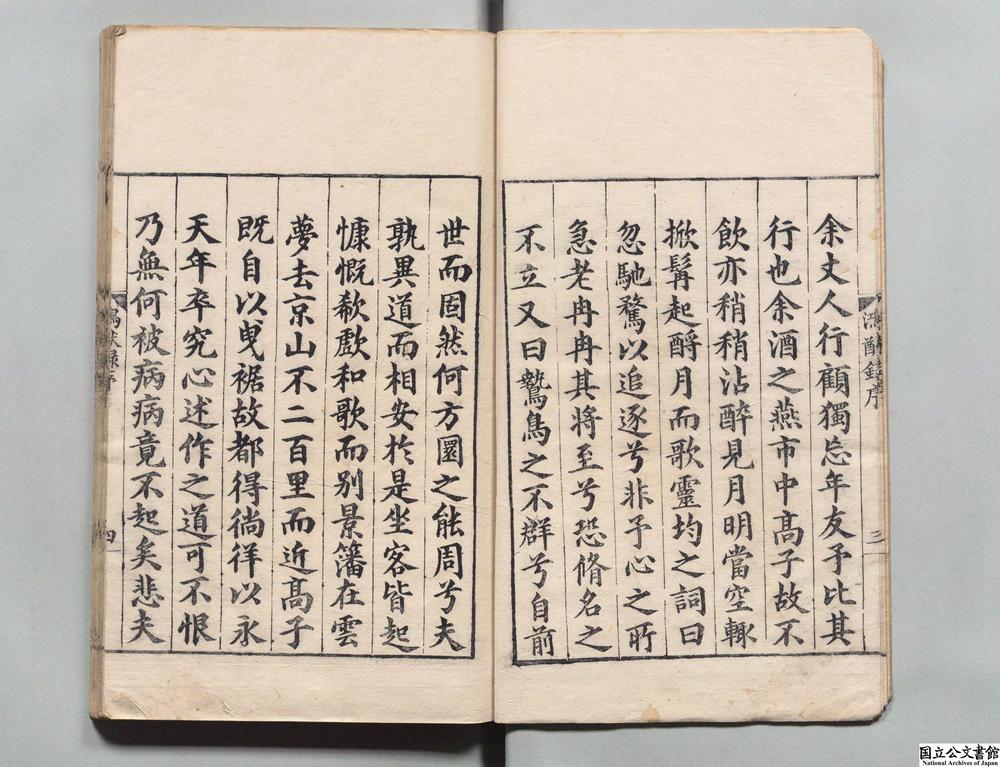 余丈人行顧獨忘年友予比其
行也余酒之燕市中高子故不
飲亦稍稍沾醉見月明當空輙
掀髯起酹月而歌靈均之詞曰
忽馳騖以追逐兮非予心之所
急老冉冉其將至兮恐脩名之
不立又曰鷙鳥之不群兮自前
世而固然何方圜之能周兮夫
孰異道而相安於是坐客皆起
慷慨欷歔和歌而别景藩在雲
夢去京山不二百里而近高子
既自以曳裾故都得徜徉以永
天年卒究心述作之道可不恨
乃無何被病病竟不起矣悲夫
序
三
四
国立公文書館
National Archives of Japan